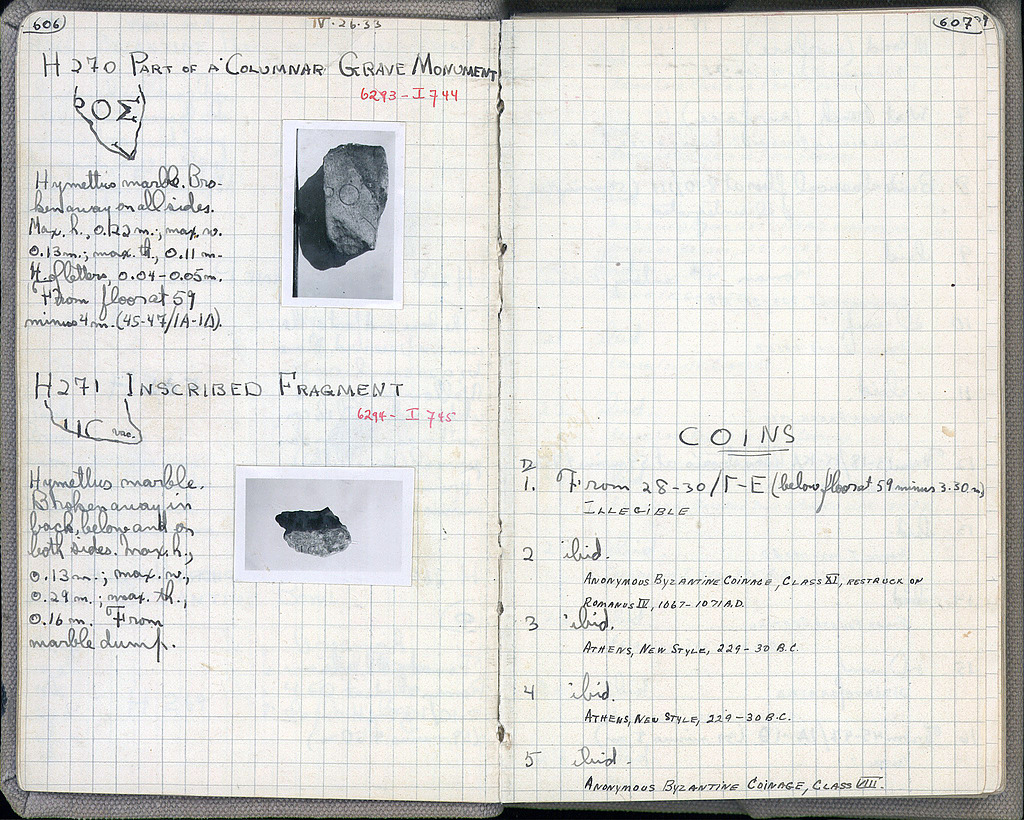 606
IV·26·33
H 270 PART OF A COLUMNAR GRAVE MONUMENT
6293 - I 744
ΟΣ
Hymettus marble. Bro-
ken away on all sides.
Max. h., 0.122 m.; max. w.
0.13 m.; max. th., 0.11 m.
H. of letters, 0.04-0.05 m.
From floor at 59
minus 4 m. (45-47/ΙΑ-ΙΔ).
H 271 INSCRIBED FRAGMENT
6294 - I 745
vac.
Hymettus marble.
Broken away in
back, below and on
both sides. Max. h.,
0.13 m.; max. w.,
0.29 m.; max. th.,
0.16 m. From
marble dump.
607
COINS
1. From 28-30/Γ-Ε (below floor at 59 minus 3.30 m)
ILLEGIBLE
2 ibid.
ANONYMOUS BYZANTINE COINAGE, CLASS XI, RESTRUCK ON
ROMANUS IV, 1067-1071 A.D.
3 ibid.
ATHENS, NEW STYLE, 229-30 B.C.
4 ibid.
ATHENS, NEW STYLE, 229-30 B.C.
5 ibid.
ANONYMOUS BYZANTINE COINAGE, CLASS VIII.